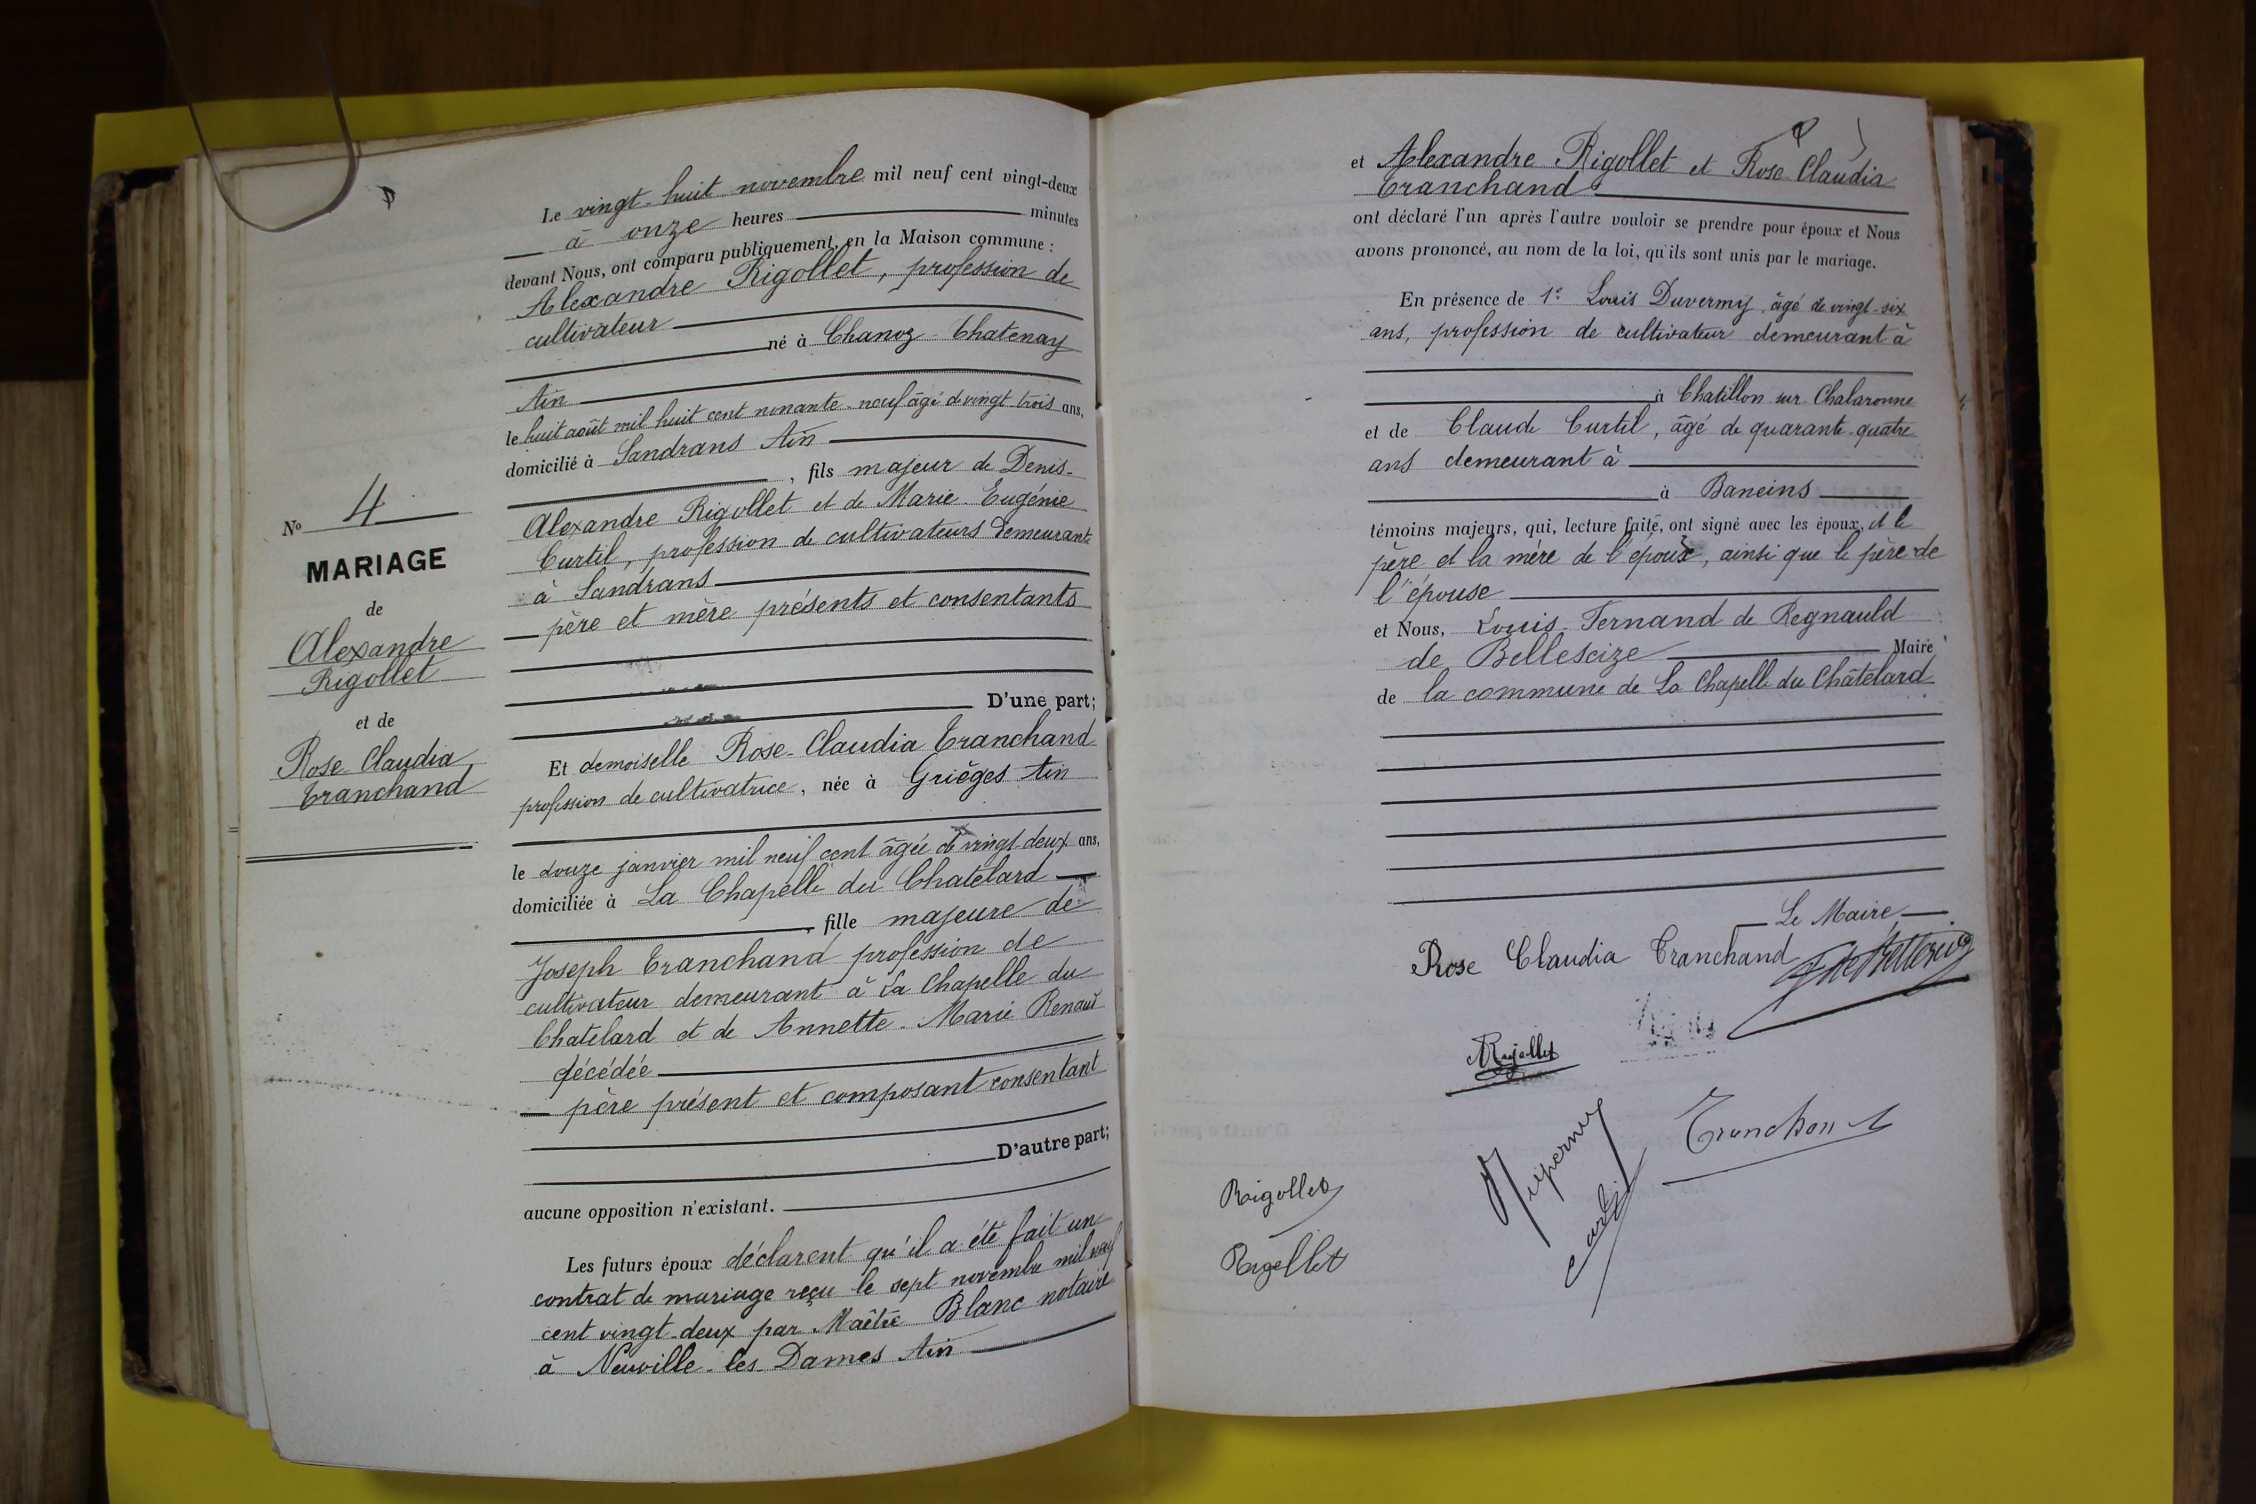 Le vingt-huit novembre mil neuf cent vingt-deux
à onze heures minutes
devant Nous, ont comparu publiquement, en la Maison commune :
Alexandre Rigollet, profession de
cultivateur
né à Chanoz Chatenay
Ain
le huit août mil huit cent nonante-neuf âgé de vingt trois ans,
domicilié à Sandrans Ain
, fils majeur de Denis-
Alexandre Rigollet et de Marie-Eugénie
Curtil, profession de cultivateurs demeurant
à Sandrans
père et mère présents et consentants
D'une part;
Nº 4
MARIAGE
de
Alexandre
Rigollet
et de
Rose-Claudia
Tranchand
Et demoiselle Rose-Claudia Tranchand
profession de cultivatrice, née à Grièges Ain
le douze janvier mil neuf cent âgée de vingt deux ans,
domiciliée à La Chapelle du Chatelard
, fille majeure de
Joseph Tranchand profession de
cultivateur demeurant à La Chapelle du
Chatelard et de Annette-Marie Renaud
décédée
père présent et composant consentant
D'autre part;
aucune opposition n'existant.
Les futurs époux déclarent qu'il a été fait un
contrat de mariage reçu le sept novembre mil neuf
cent vingt-deux par Maître Blanc notaire
à Neuville-les-Dames Ain
et Alexandre Rigollet et Rose Claudia
Tranchand
ont déclaré l'un après l'autre vouloir se prendre pour époux et Nous
avons prononcé, au nom de la loi, qu'ils sont unis par le mariage.
En présence de 1º Louis Duverny âgé de vingt-six
ans, profession de cultivateur demeurant à
à Chatillon sur Chalaronne
et de Claude Curtil, âgé de quarante-quatre
ans demeurant à
à Baneins
témoins majeurs, qui, lecture faite, ont signé avec les époux, et le
père et la mère de l'époux, ainsi que le père de
l'épouse
et Nous, Louis-Fernand de Regnauld
de Bellescize Maire
de la commune de La Chapelle du Châtelard
Le Maire
Rose Claudia Tranchand
Rigollet
Tranchand
Duverny
Curtil
Rigollet
Rigollet